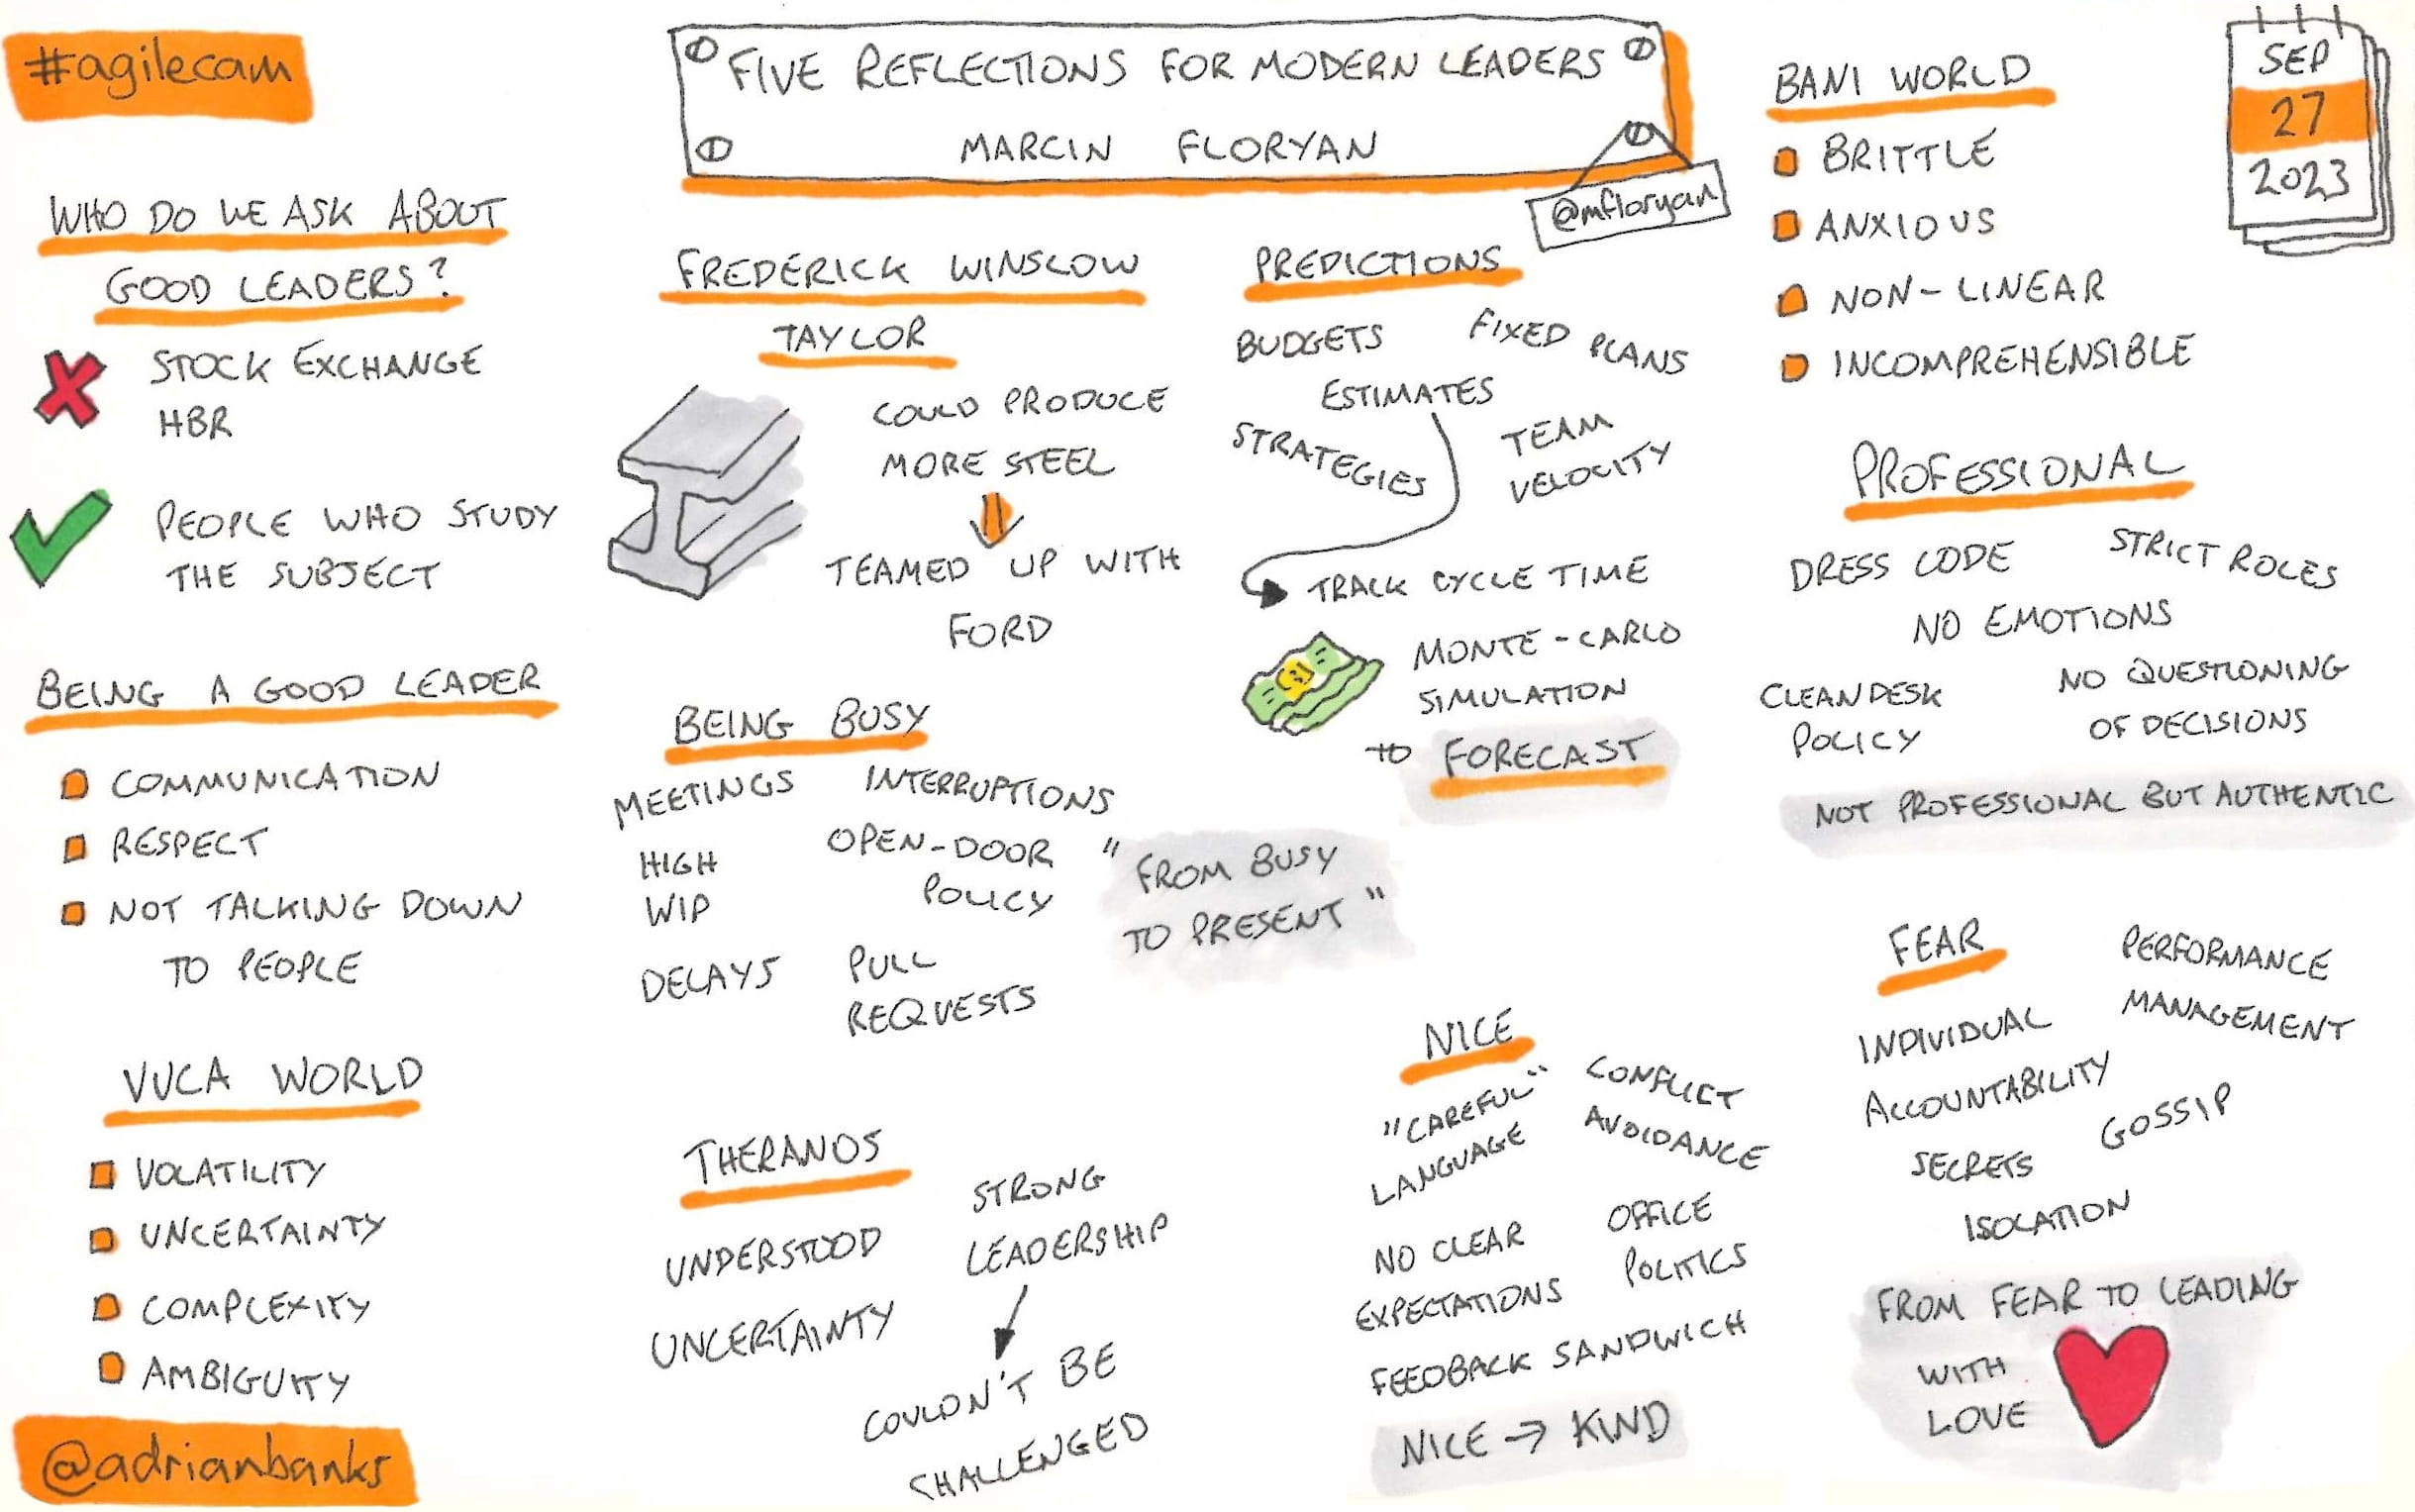 #agilecam
FIVE REFLECTIONS FOR MODERN LEADERS
MARCIN FLORYAN
@mfloryan
SEP
27
2023
WHO DO WE ASK ABOUT
GOOD LEADERS?
STOCK EXCHANGE
HBR
PEOPLE WHO STUDY
THE SUBJECT
BEING A GOOD LEADER
COMMUNICATION
RESPECT
NOT TALKING DOWN
TO PEOPLE
VUCA WORLD
VOLATILITY
UNCERTAINTY
COMPLEXITY
AMBIGUITY
@adrianbanks
FREDERICK WINSLOW
TAYLOR
COULD PRODUCE
MORE STEEL
TEAMED UP WITH
FORD
BEING BUSY
MEETINGS
INTERRUPTIONS
HIGH
WIP
OPEN-DOOR
POLICY
DELAYS
PULL
REQUESTS
"FROM BUSY
TO PRESENT"
THERANOS
UNDERSTOOD
UNCERTAINTY
STRONG
LEADERSHIP
COULDN'T BE
CHALLENGED
PREDICTIONS
BUDGETS
FIXED PLANS
ESTIMATES
STRATEGIES
TEAM
VELOCITY
TRACK CYCLE TIME
MONTE-CARLO
SIMULATION
TO FORECAST
NICE
"CAREFUL"
LANGUAGE
CONFLICT
AVOIDANCE
NO CLEAR
EXPECTATIONS
OFFICE
POLITICS
FEEDBACK SANDWICH
NICE → KIND
BANI WORLD
BRITTLE
ANXIOUS
NON-LINEAR
INCOMPREHENSIBLE
PROFESSIONAL
DRESS CODE
STRICT ROLES
NO EMOTIONS
CLEAN DESK
POLICY
NO QUESTIONING
OF DECISIONS
NOT PROFESSIONAL BUT AUTHENTIC
FEAR
PERFORMANCE
MANAGEMENT
INDIVIDUAL
ACCOUNTABILITY
GOSSIP
SECRETS
ISOLATION
FROM FEAR TO LEADING
WITH
LOVE